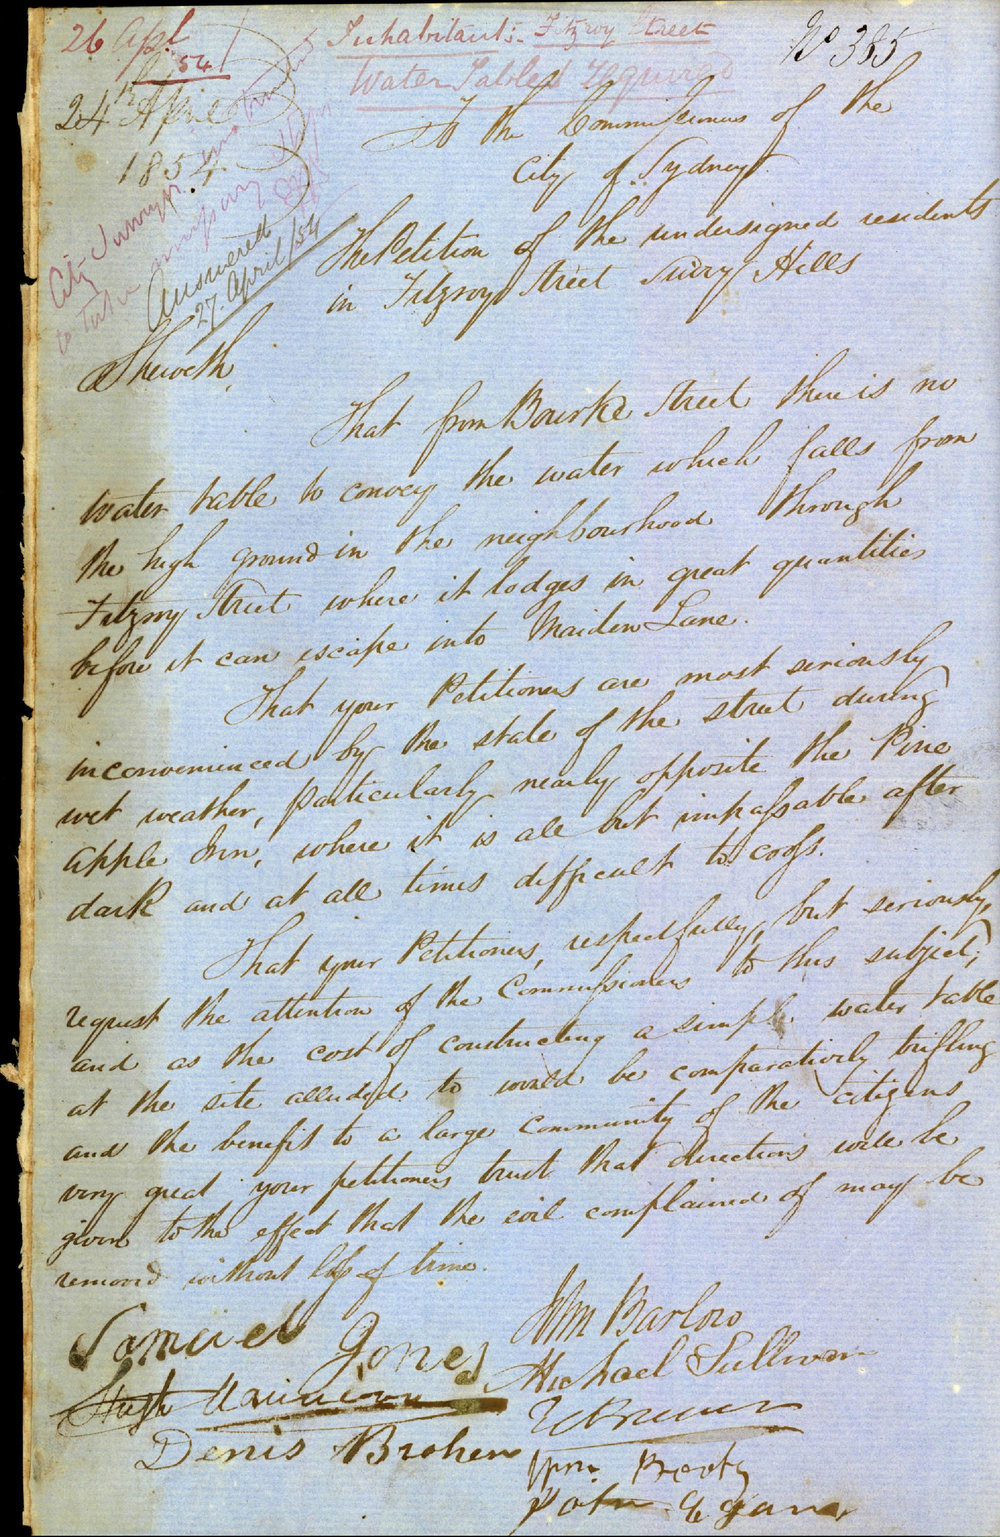 26 Apl
54
Inhabitants: Fitzroy Street
Water Tables required
No 385
24th April
1854.
City Surveyor
to
Answered
27. April/54
To the Commissioners of the
City of Sydney
The Petition of the undersigned residents
in Fitzroy Street Surry Hills
Sheweth,
That from Bourke Street there is no
water table to convey the water which falls from
the high ground in the neighbourhood through
Fitzroy Street where it lodges in great quantities
before it can escape into Maiden Lane.
That your Petitioners are most seriously
inconvenienced by the state of the street during
wet weather, particularly nearly opposite the Pine
apple Inn, where it is all but impassable after
dark and at all times difficult to cross.
That your Petitioners, respectfully, but seriously,
request the attention of the Commissioners to this subject;
and as the cost of constructing a simple water table
at the site alluded to would be comparatively trifling
and the benefit to a large community of the citizens
very great, your petitioners trust that directions will be
given to the effect that the evil complained of may be
removed without loss of time.
Samuel Jones
John Barlow
Michael Sullivan
Hugh
Denis